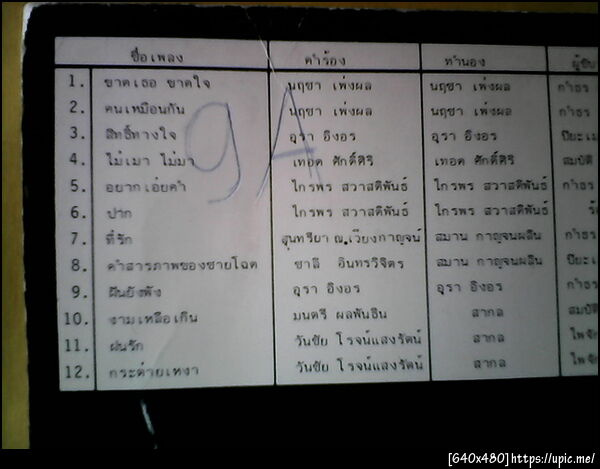 ชื่อเพลง คำร้อง ทำนอง ผู้ขับ
1. ขาดเธอ ขาดใจ นฤชา เพ่งผล นฤชา เพ่งผล กำธร
2. คนเหมือนกัน นฤชา เพ่งผล นฤชา เพ่งผล กำธร
3. สิทธิ์ทางใจ อุรา อิงอร อุรา อิงอร ปิยะเม
4. ไม่เมา ไม่มา เทอด ศักดิ์ศิริ เทอด ศักดิ์ศิริ สมบัติ
5. อยากเอ่ยคำ ไกรพร สวาสดิพันธ์ ไกรพร สวาสดิพันธ์ กำธร
6. ปาก ไกรพร สวาสดิพันธ์ ไกรพร สวาสดิพันธ์
7. ที่รัก สุนทรียา ณ.เวียงกาญจน์ สมาน กาญจนผลิน กำธร
8. คำสารภาพของชายโฉด ชาลี อินทรวิจิตร สมาน กาญจนผลิน ปิยะเ
9. ฝันยังพัง อุรา อิงอร อุรา อิงอร กำธร
10. งามเหลือเกิน มนตรี ผลพันธิน สากล สมบัติ
11. ฝนรัก วันชัย โรจน์แสงรัตน์ สากล ไพจิ
12. กระต่ายเหงา วันชัย โรจน์แสงรัตน์ สากล ไพจิ
9A
[640x480]https://upic.me/